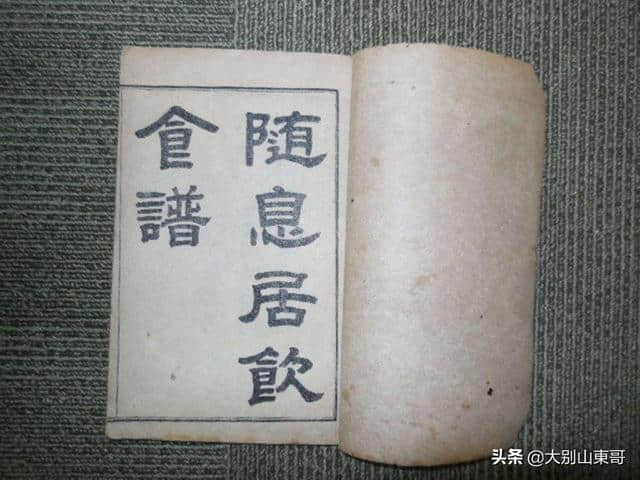 随息居飲
食譜
头条 @大别山東哥